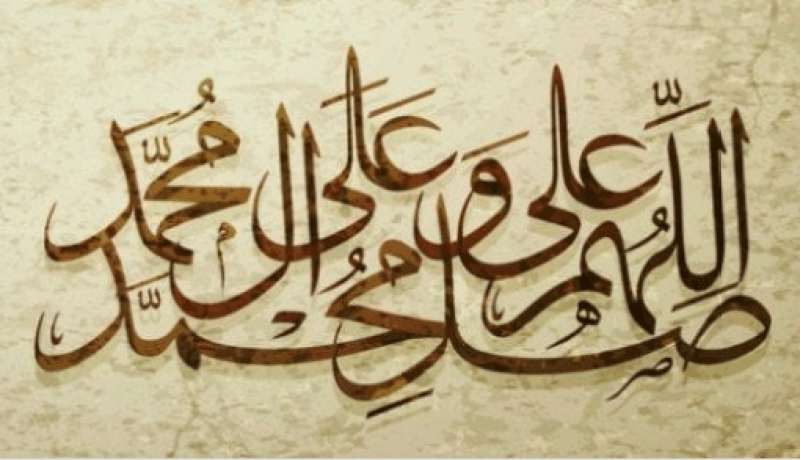 اللّهم صل على مُحمّد وعلى ال مُحمّد